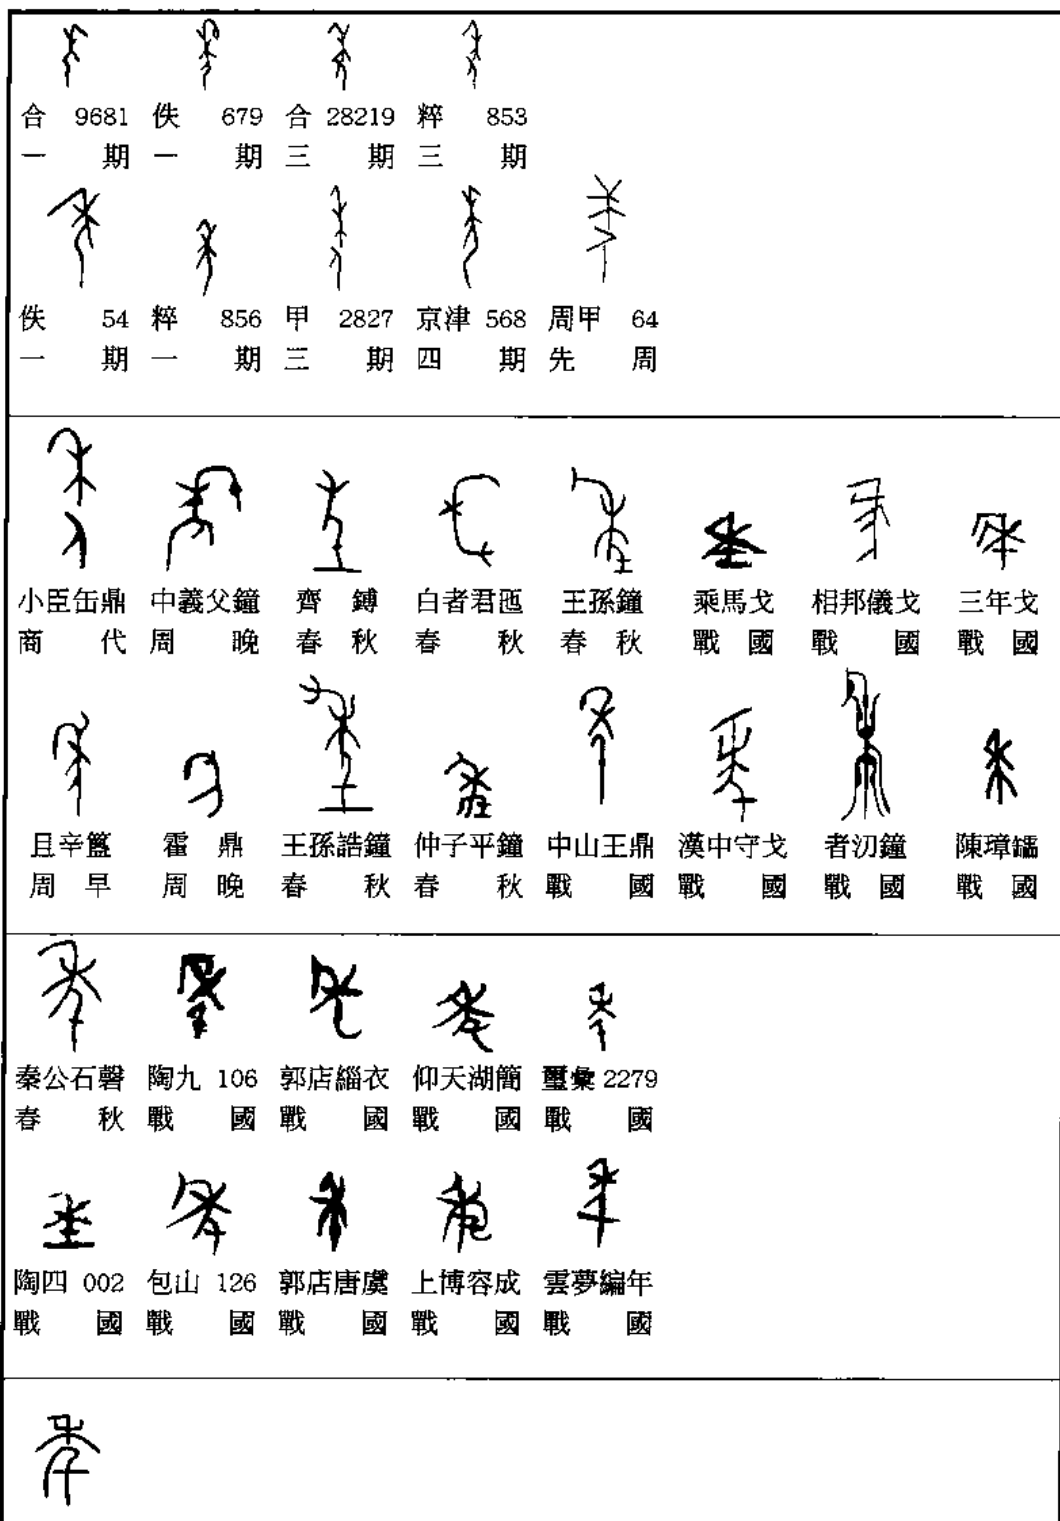 合 9681 佚 679 合 28219 粹 853
一期 一期 三期 三期
佚 54 粹 856 甲 2827 京津 568 周甲 64
一期 一期 三期 四期 先周
小臣缶鼎 中義父鐘 齊鎛 白者君匜 王孫鐘 乘馬戈 相邦儀戈 三年戈
商代 周晚 春秋 春秋 春秋 戰國 戰國 戰國
且辛簋 霍鼎 王孫誥鐘 仲子平鐘 中山王鼎 漢中守戈 者汈鐘 陳璋𨰻
周早 周晚 春秋 春秋 戰國 戰國 戰國 戰國
秦公石磬 陶九 106 郭店緇衣 仰天湖簡 璽彙 2279
春秋 戰國 戰國 戰國 戰國
陶四 002 包山 126 郭店唐虞 上博容成 雲夢編年
戰國 戰國 戰國 戰國 戰國